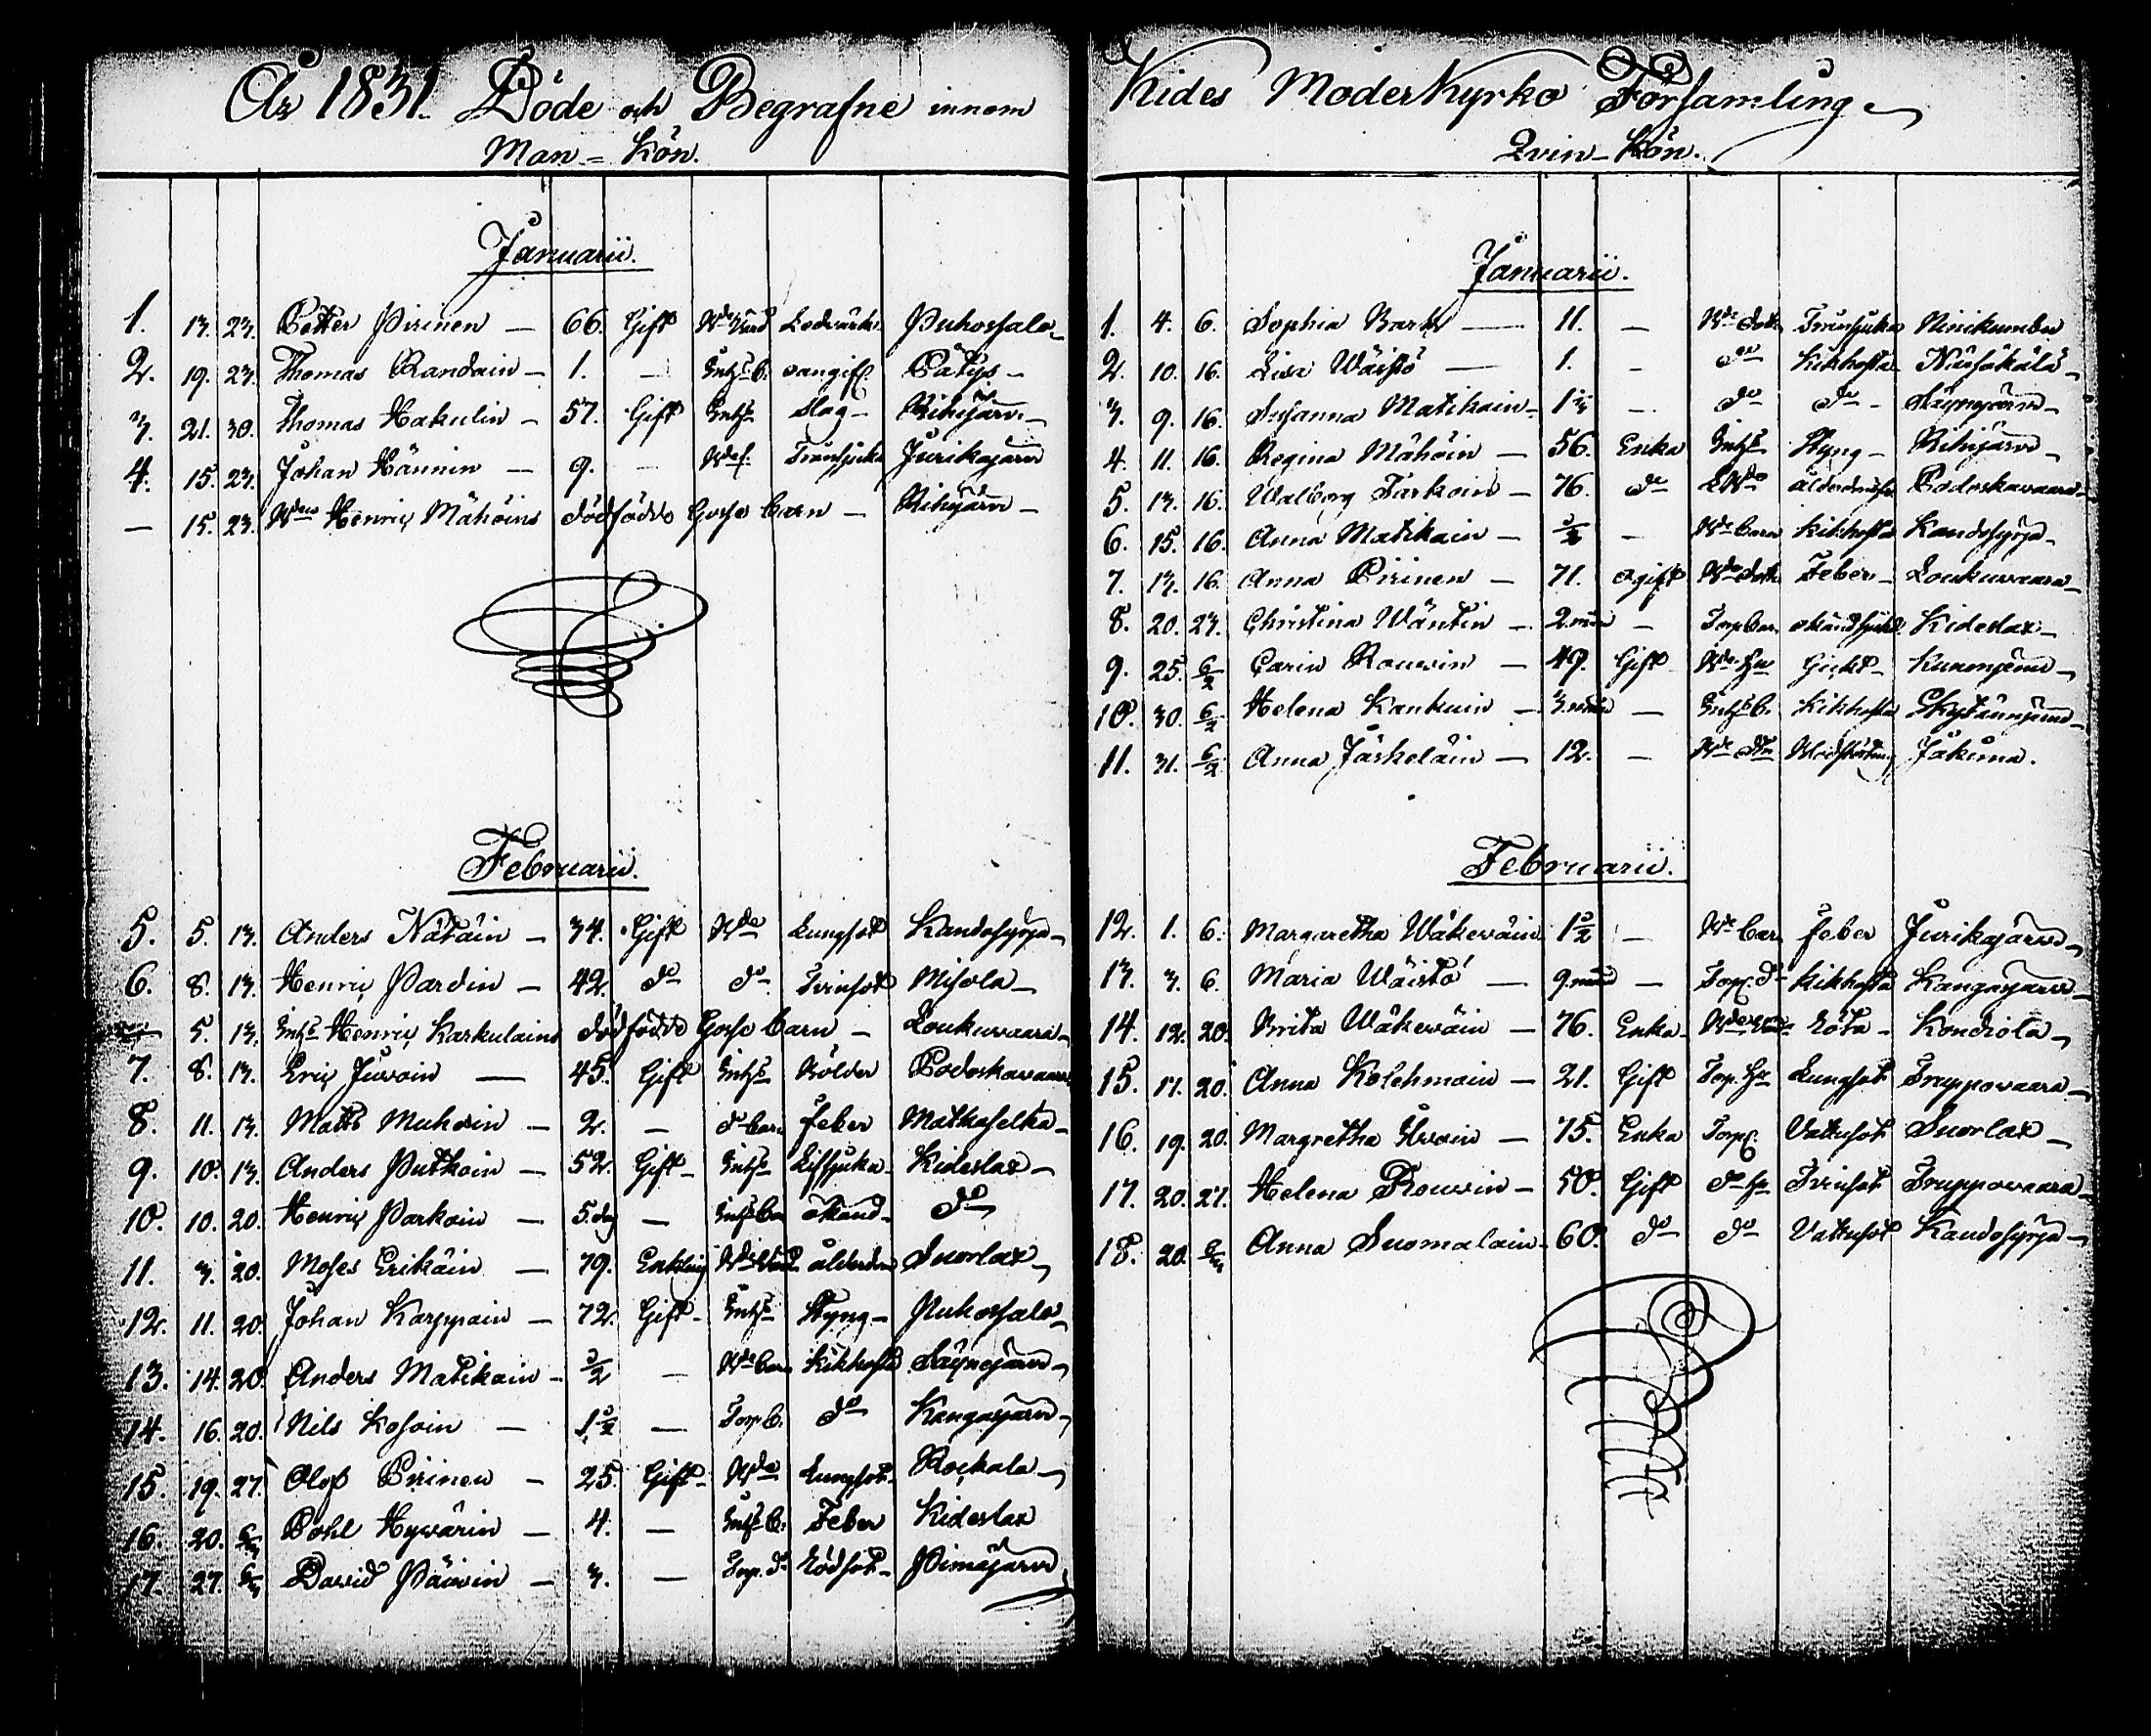 År 1831. Döde och Begrafne innom
Man-Kön.
Januarii.
1. 13. 23. Petter Pirinen — 66. Gift Bde Ledvärk. Puhossalo
2. 19. 23. Thomas Randain — 1. — Inhs. b. oangif. Pätys —
3. 21. 30. Thomas Hakulin — 57. Gift Inhs Slag — Rihijärvi —
4. 15. 23. Johan Hännin — 9. — Trånsjuka Jurikajärvi
— 15. 23. Bden Henric Mähöins dödfödde Gosse barn — Rihijärvi —
Februarii.
5. 5. 13. Anders Nätäin — 34. Gift Bde Lungsot Kandosyrjä —
6. 8. 13. Henric Pardin — 42. do do Tvinsot Misola —
5. 13. Inhs Henric Karkulains dödfödde Gosse barn — Loukuvaara —
7. 8. 13. Eric Juvoin — 45. Gift Inhs Bölder Podoskavaara
8. 11. 13. Matts Muhoin — 2. — do barn feber Matkaselka —
9. 10. 13. Anders Putkoin — 52. Gift — Inhs Lifsjuka Kideslax —
10. 10. 20. Henric Parkoin — 5. dag — Inhs barn okänd — do
11. 3. 20. Moses Erikäin — 79. Enkling ålderdom Suorlax —
12. 11. 20. Johan Karppain — 72. Gift — Inhs Styng — Puhossalo —
13. 14. 20. Anders Matikain — 3/2 — Bde barn Kikhosta Säynejärvi —
14. 16. 20. Nils Kosoin — 1 3/2 — Torp. b. do Kangasjärvi —
15. 19. 27. Olof Pirinen — 25. Gift — Bde Lungsot — Rockala —
16. 20. 6/3 Pohl Hyvärin — 4. — Inhs b. Feber Kideslax
17. 27. 6/3 David Päivin — 3. — Torp. do Rödsot — Piimäjärvi
Kides Moderkyrko Församling
Qvin-Kön.
Januarii.
1. 4. 6. Sophia Bark — 11. — Bde dott. Trånsjuka Niinikumbu
2. 10. 16. Lisa Wäistö — 1. — do Kikhosta Närsäkälä —
3. 9. 16. Susanna Matikain — — do do — Säynejärvi —
4. 11. 16. Regina Mähöin — 56. Enka Inhs Styng — Rihijärvi —
5. 13. 16. Walborg Tarkoin — 76. do Podoskavaara —
6. 15. 16. Anna Matikain — 3/2 — Bde barn Kikhosta Kandosyrjä —
7. 13. 16. Anna Pirinen — 71. ogift Bde dott Feber — Loukuvaara —
8. 20. 23. Christina Wäntin — 2. mån — Torp bar. Kideslax —
9. 25. 6/2 Carin Rouvin — 49. Gift Bde Hu Gickt —
10. 30. 6/2 Helena Kankuin — 3. mån — Inhs b. Kikhosta
11. 31. 6/2 Anna Jäskeläin — 12. — Jakima.
Februarii.
12. 1. 6. Margaretha Wäkeväin 1 3/2 — Bde bar. feber Jurikajärvi —
13. 3. 6. Maria Wäistö — 9. mån — Torp. do Kikhosta Kangasjärvi —
14. 12. 20. Brita Wäkeväin — 76. Enka — Röta — Kondiola —
15. 17. 20. Anna Kolehmain — 21. Gift Torp. Hu Lungsot Truppovaara —
16. 19. 20. Margretha Ilvoin — 75. Enka Torp. Vattusot Suorlax —
17. 20. 27. Helena Rouvin — 50. Gift do Hu Tvinsot Truppovaara —
18. 20. 6/3 Anna Suomalain — 60. do do Vattusot Kandosyrjä —